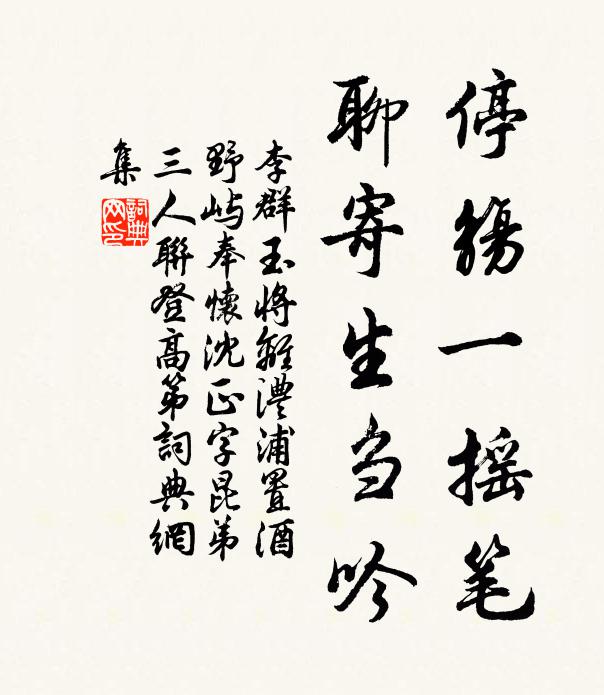 停觞一摇笔
聊寄生刍吟
李群玉将離澧浦置酒
野屿奉懷沈正字昆弟
三人聯登高第詞典網
集
詞典网印